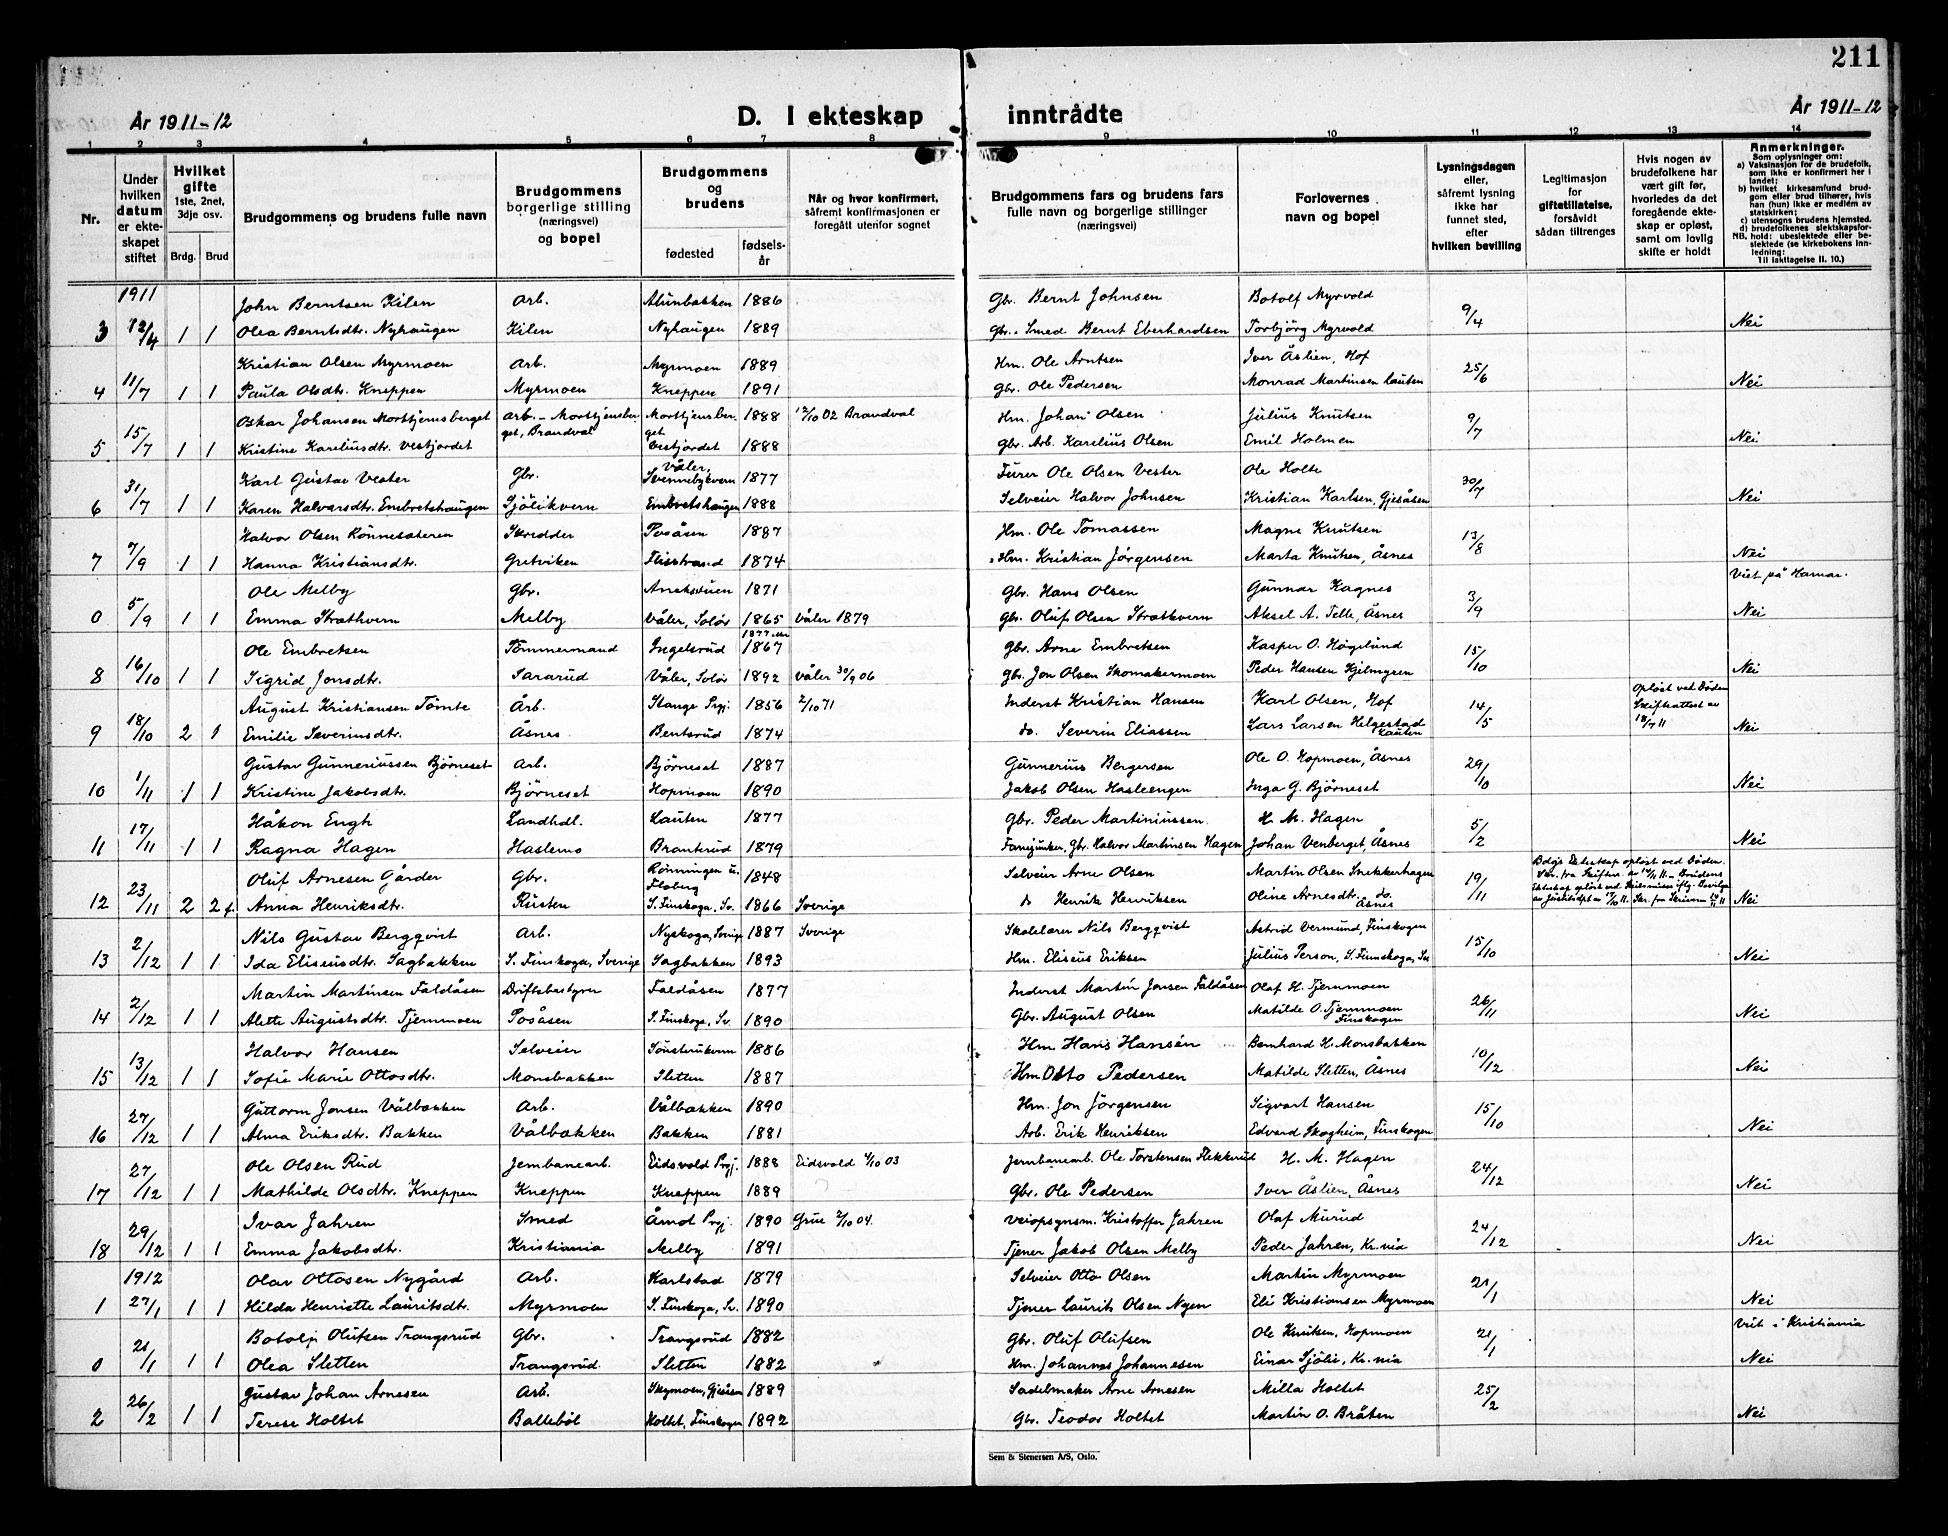 211
År 1911-12
D. I ekteskap inntrådte
År 1911-12
1 2 3 4 5 6 7 8 9 10 11 12 13 14
Nr.
Under hvilken datum er ekteskapet stiftet
Hvilket gifte 1ste, 2net, 3dje osv.
Brdg. Brud
Brudgommens og brudens fulle navn
Brudgommens borgerlige stilling (næringsvei) og bopel
Brudgommens og brudens
fødested
fødselsår
Når og hvor konfirmert, såfremt konfirmasjonen er foregått utenfor sognet
Brudgommens fars og brudens fars fulle navn og borgerlige stillinger (næringsvei)
Forlovernes navn og bopel
Lysningsdagen eller, såfremt lysning ikke har funnet sted, efter hvilken bevilling
Legitimasjon for giftetillatelse, forsåvidt sådan tiltrenges
Hvis nogen av brudefolkene har vært gift før, hvorledes da det foregående ekteskap er opløst, samt om lovlig skifte er holdt
Anmerkninger.
Som oplysninger om:
a) Vaksinasjon for de brudefolk, som ikke er konfirmert her i landet;
b) hvilket kirkesamfund brudgom eller brud tilhører, hvis han (hun) ikke er medlem av statskirken;
c) utensogns brudens hjemsted.
d) brudefolkenes slektskapsforhold: ubeslektede eller beslektede (se kirkebokens innledning:
NB. Til iakttagelse II. 10.)
1911 John Berntsen Kilen Arb. Alunbakken 1886 Gbr. Bernt Johnsen Botolf Myrvold
3 12/4 1 1 Olea Berntsdtr. Nyhaugen Kilen Nyhaugen 1889 Gbr. Smed Bernt Eberhardsen Torbjörg Myrvold 9/4 Nei
Kristian Olsen Myrmoen Arb. Myrmoen 1889 Hm. Ole Arntsen Iver Åslien, Hof
4 11/7 1 1 Paula Olsdtr. Kneppen Myrmoen Kneppen 1891 Gbr. Ole Pedersen Monrad Martinsen Lauten 25/6 Nei
Oskar Johansen Morttjernsberget Arb. - Morttjernsberget, Brandval Morttjernsberget 1888 12/10 02 Brandval Hm. Johan Olsen Julius Knutsen
5 15/7 1 1 Kristine Kareliusdtr. Vestjordet Vestjordet 1888 Gbr. Arb. Karelius Olsen Emil Holmen 9/7 Nei
Karl Gustav Vester Gbr. Våler, Svennebykvern 1877 Furer Ole Olsen Vester Ole Holte
6 31/7 1 1 Karen Halvorsdtr. Embretshaugen Sjölikvern Embretshaugen 1888 Selveier Halvor Johnsen Kristian Karlsen, Gjesåsen 30/7 Nei
Halvor Olsen Rönnesæteren Skredder Posåsen 1887 Hm. Ole Tomassen Magne Knutsen
7 7/9 1 1 Hanna Kristiansdtr. Gretviken Flisstrand 1874 Hm. Kristian Jörgensen Marta Knutsen, Åsnes 13/8 Nei
Ole Melby Gbr. 1871 Gbr. Hans Olsen Gunnar Kagnes Viet på Hamar.
0 5/9 1 1 Emma Strætkvern Melby Våler, Solör 1865 Våler 1879 Gbr. Oluf Olsen Strætkvern Aksel A. Telle, Åsnes 3/9 Nei
Ole Embretsen Tömmermand Ingelsrud 1867 Gbr. Arne Embretsen Kasper O. Högelund
8 16/10 1 1 Sigrid Jonsdtr. Sararud Våler, Solör 1892 Våler 30/9 06 Gbr. Jon Olsen Skomakermoen Peder Hansen Kjelmyren 15/10 Nei
August Kristiansen Tömte Arb. Stange Prgj. 1856 2/10 71 Inderst Kristian Hansen Karl Olsen, Hof Oplöst ved Döden Skifteattest av 18/7 11
9 18/10 2 1 Emilie Severinsdtr. Åsnes Bentsrud 1874 do. Severin Eliassen Lars Larsen Helgestad Lauten 14/5 Nei
Gustav Gunneriussen Björneset Arb. Björneset 1887 Gunnerius Bergersen Ole O. Hopmoen, Åsnes
10 1/11 1 1 Kristine Jakobsdtr. Björneset Hopmoen 1890 Jakob Olsen Hasleengen Inga G. Björneset 29/10 Nei
Håkon Engh Landhdl. Lauten 1877 Gbr. Peder Martiniussen. H. M. Hagen
11 17/11 1 1 Ragna Hagen Haslemo Brantrud 1879 Fanejunker, Gbr. Halvor Martinsen Hagen Johan Venberget, Åsnes 5/2 Nei
Oluf Arnesen Gårder Gbr. Rönningen u. Floberg 1848 Selveier Arne Olsen Martin Olsen Snekkerhagen
12 23/11 2 2 f. Anna Henriksdtr. Rusten S. Finskoga, Sv. 1866 Sverige do Henrik Henriksen Oline Arnesdtr. do. Åsnes 19/11 Nei
Nils Gustav Bergqvist Arb. Nyskoga, Sverige 1887 Sverige Skolelærer Nils Bergqvist Astrid Vermund, Finskogen
13 2/12 1 1 Ida Eliseusdtr. Sagbakken S. Finskoga, Sverige Sagbakken 1893 Hm. Eliseus Eriksen Julius Person, S. Finnskoga, Sv 15/10 Nei
Martin Martinsen Faldåsen Driftsbestyrer Faldåsen 1877 Inderst Martin Jonsen Faldåsen Olaf H. Tjernmoen
14 2/12 1 1 Alette Augustsdtr. Tjernmoen Posåsen S. Finskoga, Sv. 1890 Gbr. August Olsen Matilde O. Tjernmoen Finskogen 26/11 Nei
Halvor Hansen Selveier 1886 Hm. Hans Hansen Bernhard H. Monsbakken
15 13/12 1 1 Sofie Marie Ottosdtr. Monsbakken Sletten 1887 Hm Otto Pedersen Matilde Sletten, Åsnes 10/12 Nei
Guttorm Jonsen Vålbækken Arb. Vålbækken 1890 Hm. Jon Jörgensen Sigvart Hansen
16 27/12 1 1 Alma Eriksdtr. Bakken Vålbækken Bakken 1881 Arb. Erik Henriksen Edvard Skogheim, Finskogen 15/10 Nei
Ole Olsen Rud Jernbanearb. Eidsvold Prgj. 1888 Eidsvold 4/10 03 Jernbanearb. Ole Torstensen Flekkerud H. M. Hagen
17 27/12 1 1 Mathilde Olsdtr. Kneppen Kneppen Kneppen 1889 Gbr. Ole Pedersen Iver Åslien, Åsnes 24/12 Nei
Ivar Jahren Smed Åmot Prgj. 1890 Grue 2/10 04. Veiopsynsm. Kristoffer Jahren Olaf Murud
18 29/12 1 1 Emma Jakobsdtr. Kristiania Melby 1891 Tjener Jakob Olsen Melby Peder Jahren, Kr.nia 24/12 Nei
1912 Olav Ottosen Nygård Arb. Karlstad 1879 Selveier Otto Olsen Martin Myrmoen
1 27/1 1 1 Hilda Henriette Lauritsdtr. Myrmoen S. Finskoga, Sv. 1890 Tjener Laurits Olsen Nyen Eli Kristiansen Myrmoen 21/1 Nei
Botolf Olufsen Trangsrud Gbr. Trangsrud 1882 Gbr. Oluf Olufsen Ole Knutsen, Hopmoen Viet i Kristiania
0 21/1 1 1 Olea Sletten Trangsrud Sletten 1882 Hm. Johannes Johannesen Einar Sjölie, Kr.nia 21/1 Nei
Gustav Johan Arnesen Arb. Skymoen, Gjesåsen 1889 Sadelmaker Arne Arnesen Milla Holtet
2 26/2 1 1 Terese Holtet Balleböl Holtet, Finskogen 1892 Gbr. Teodor Holtet Martin O. Bråten 25/2 Nei
Sem & Stenersen A/S, Oslo.